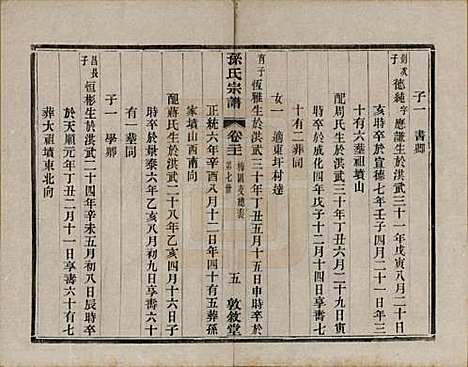 子一 書卿
劍次子 德純字應謙生於洪武三十一年戊寅八月二十日
亥時卒於宣德七年壬子四月二十一日享壽三
十有六葬本塋墳山
配周氏生於洪武三十年丁丑六月二十九日寅
時卒於成化四年戊子十二月二十日享壽七
十有二葬同
女一 適東圩村達
育子 恆雅生於洪武三十年丁丑五月十五日申時卒於
正統六年辛酉八月十二日享壽四十有五葬孫
家墳山酉南向
孫氏宗譜
卷三
第七世
五
敦敘堂
配蔣氏生於洪武二十八年乙亥四月十六日子
時卒於景泰六年乙亥八月初九日享壽六十
有一墓同
子一 學卿
昌長子 恆彬生於洪武二十四年辛未五月初八日辰時卒
於天順元年丁丑二月十一日享壽六十有七
葬大祖墳東北向